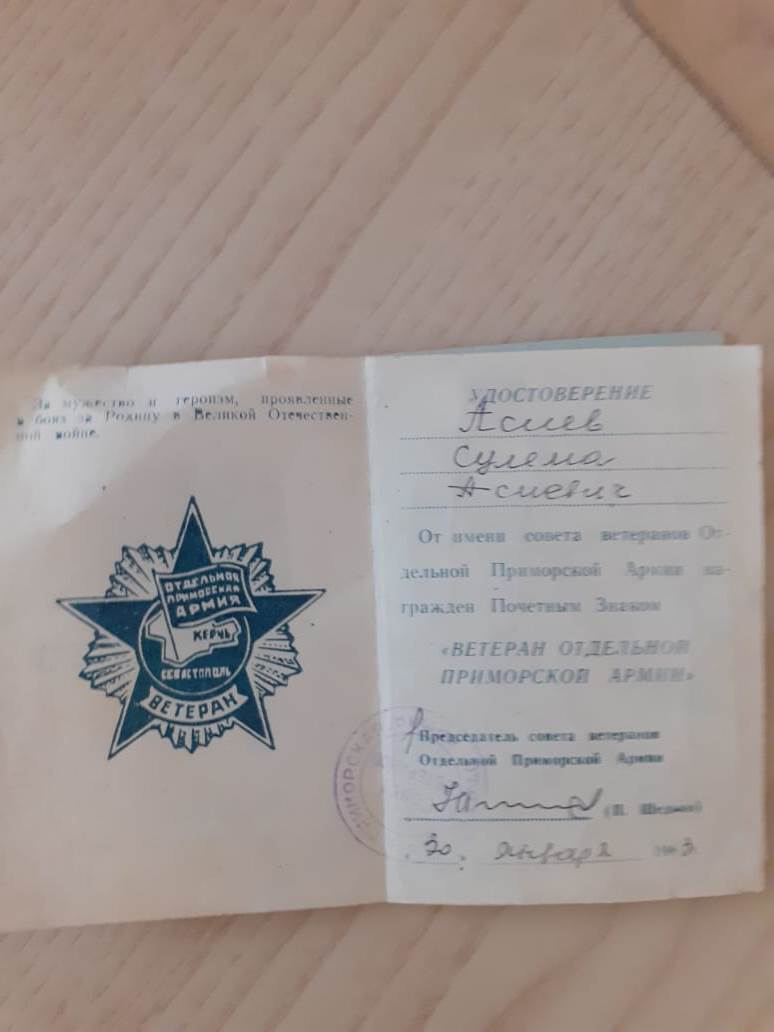 За мужество и героизм, проявленные
в боях за Родину в Великой Отечествен-
ной войне.
ОТДЕЛЬНАЯ
ПРИМОРСКАЯ
АРМИЯ
КЕРЧЬ
СЕВАСТОПОЛЬ
ВЕТЕРАН
УДОСТОВЕРЕНИЕ
Асиев
Сулема
Асиевич
От имени совета ветеранов От-
дельной Приморской Армии на-
гражден Почетным Знаком
«ВЕТЕРАН ОТДЕЛЬНОЙ
ПРИМОРСКОЙ АРМИИ»
Председатель совета ветеранов
Отдельной Приморской Армии
30 января